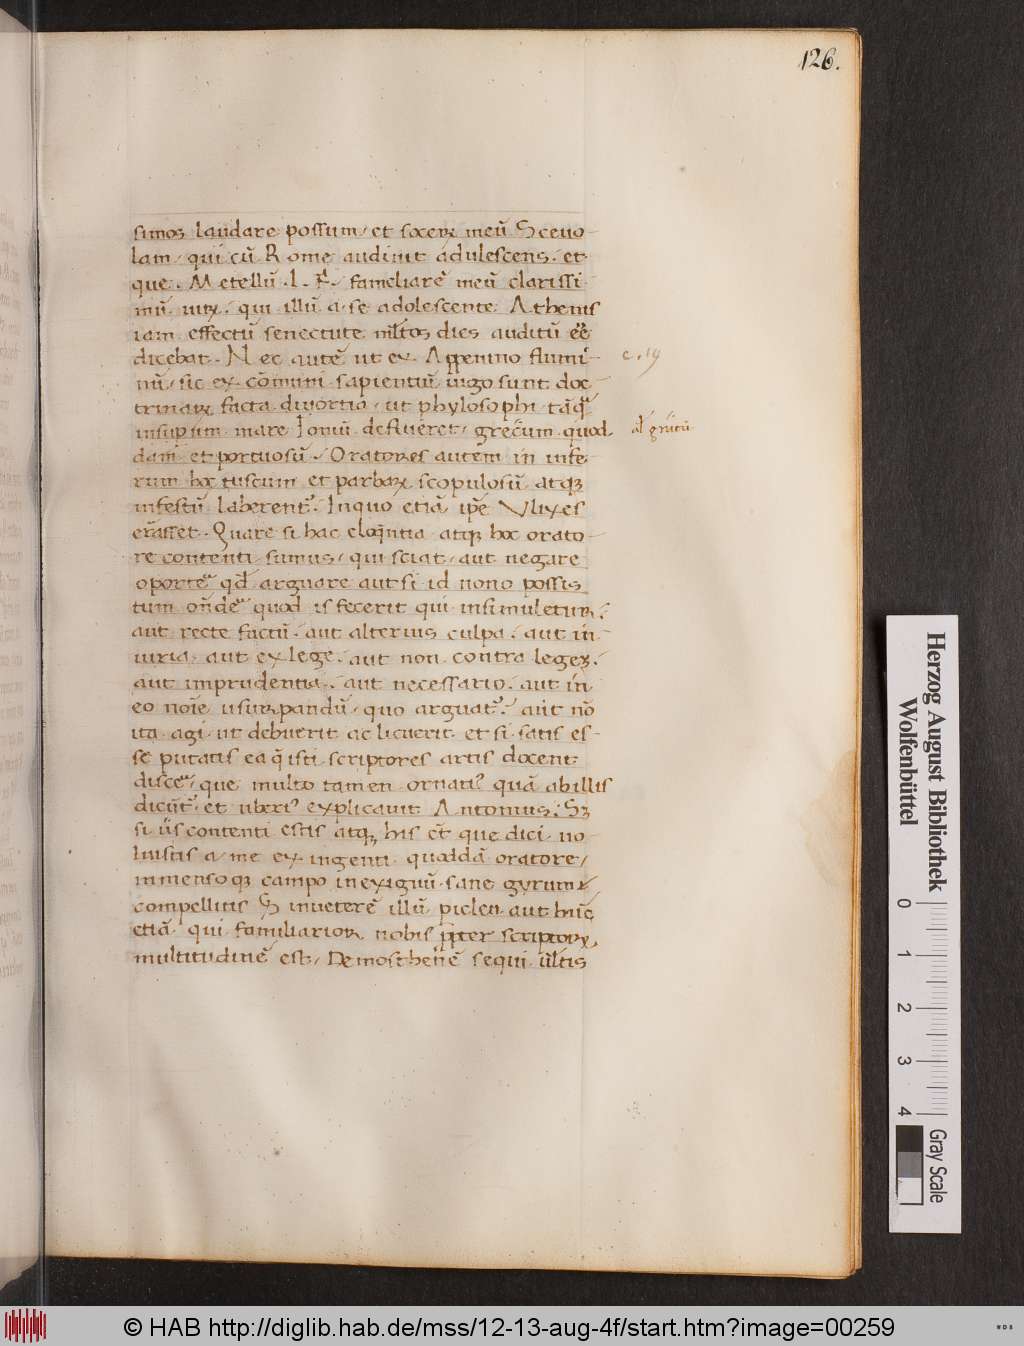 126.
simos laudare possum / et socerꝝ meũ Sceuo-
lam / qui cũ Rome audiuit adulescens . et
que . Metellũ . L . F . familiarẽ meũ clarissi-
mũ uirꝝ . qui illũ a se adolescente Athenis
iam effectũ senectute ml̃tos dies auditũ eẽ
dicebat . Nec autẽ ut ex Appenino flumi-
c. 19
nũ / sic ex cõmuni sapientiũ iugo sunt doc-
trinaꝝ facta diuortia / ut phylosophi tãq̃
in supum mare Ioniũ deflueret / grecum quod
al' grecũ
dam et portuosũ / Oratores autem in infe-
rum hoc tuscum et barbaꝝ scopulosũ atqꝫ
infestũ laberent᷑ . In quo etiã ip̃e Vlixes
erasset . Quare si hac eloq̃ntia atqꝫ hoc orato-
re contenti sumus / qui sciat / aut negare
oporte᷑ qd̃ arguare aut si id nono possis
tum oñde᷑ quod is fecerit qui insimuletur .
aut recte factũ . aut alterius culpa . aut in-
iuria . aut ex lege . aut non contra legeꝫ .
aut imprudentia . aut necessario . aut in
eo noĩe usurpandũ / quo arguat᷑ . aut nõ
ita agi / ut debuerit ac licuerit et si satis es-
se putatis ea q̃ isti scriptores artis docent
disce᷑ / que multo tamen ornati᷒ quã ab illis
dicũt᷑ et uberi᷒ explicauit Antonius . Sꝫ
si iis contenti estis atqꝫ his et̃ que dici uo-
luistis a me ex ingenti quoddã oratore /
inmensoqꝫ campo in exiguũ sane gyrum
compellitis S inueterẽ illũ piclen aut hũc
etiã qui familiarior nobis ꝓpter scriptoꝝ
multitudinẽ est / Demosthenẽ sequi ũltis
Herzog August Bibliothek
Wolfenbüttel
0 1 2 3 4
Gray Scale
© HAB http://diglib.hab.de/mss/12-13-aug-4f/start.htm?image=00259